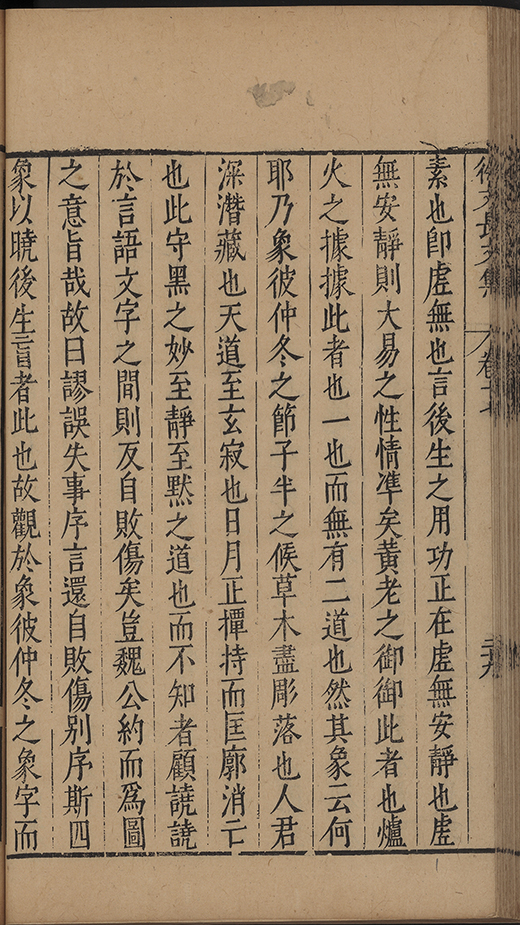 徐文長文集 卷十七 二十九
素也卽虗無也言後生之用功正在虗無安靜也虗
無安靜則大易之性情準矣黃老之御御此者也爐
火之據據此者也一也而無有二道也然其象云何
耶乃象彼仲冬之節子半之候草木盡彫落也人君
深潛藏也天道至玄寂也日月正撣持而匡廓消亡
也此守黑之妙至靜至默之道也而不知者顧譊譊
於言語文字之間則反自敗傷矣豈魏公約而爲圖
之意旨哉故曰謬誤失事序言還自敗傷别序斯四
象以曉後生盲者此也故觀於象彼仲冬之象字而